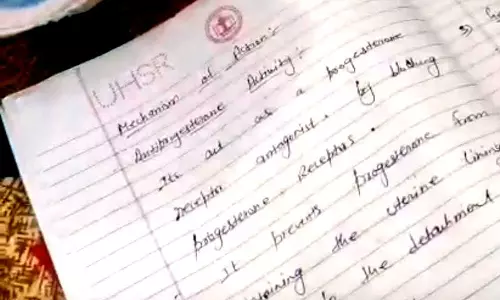 UHSR
Mechanism of Action:-
Antiprogesterone Activity:-
Its act as a progesterone
receptor antagonist. by blocking
progesterone Receptors.
It prevents progesterone from
the uterine lining
the detachment